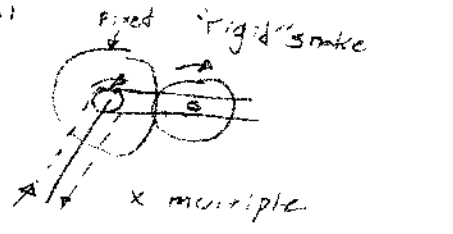 Fixed "rigid" snake
S
x multiple